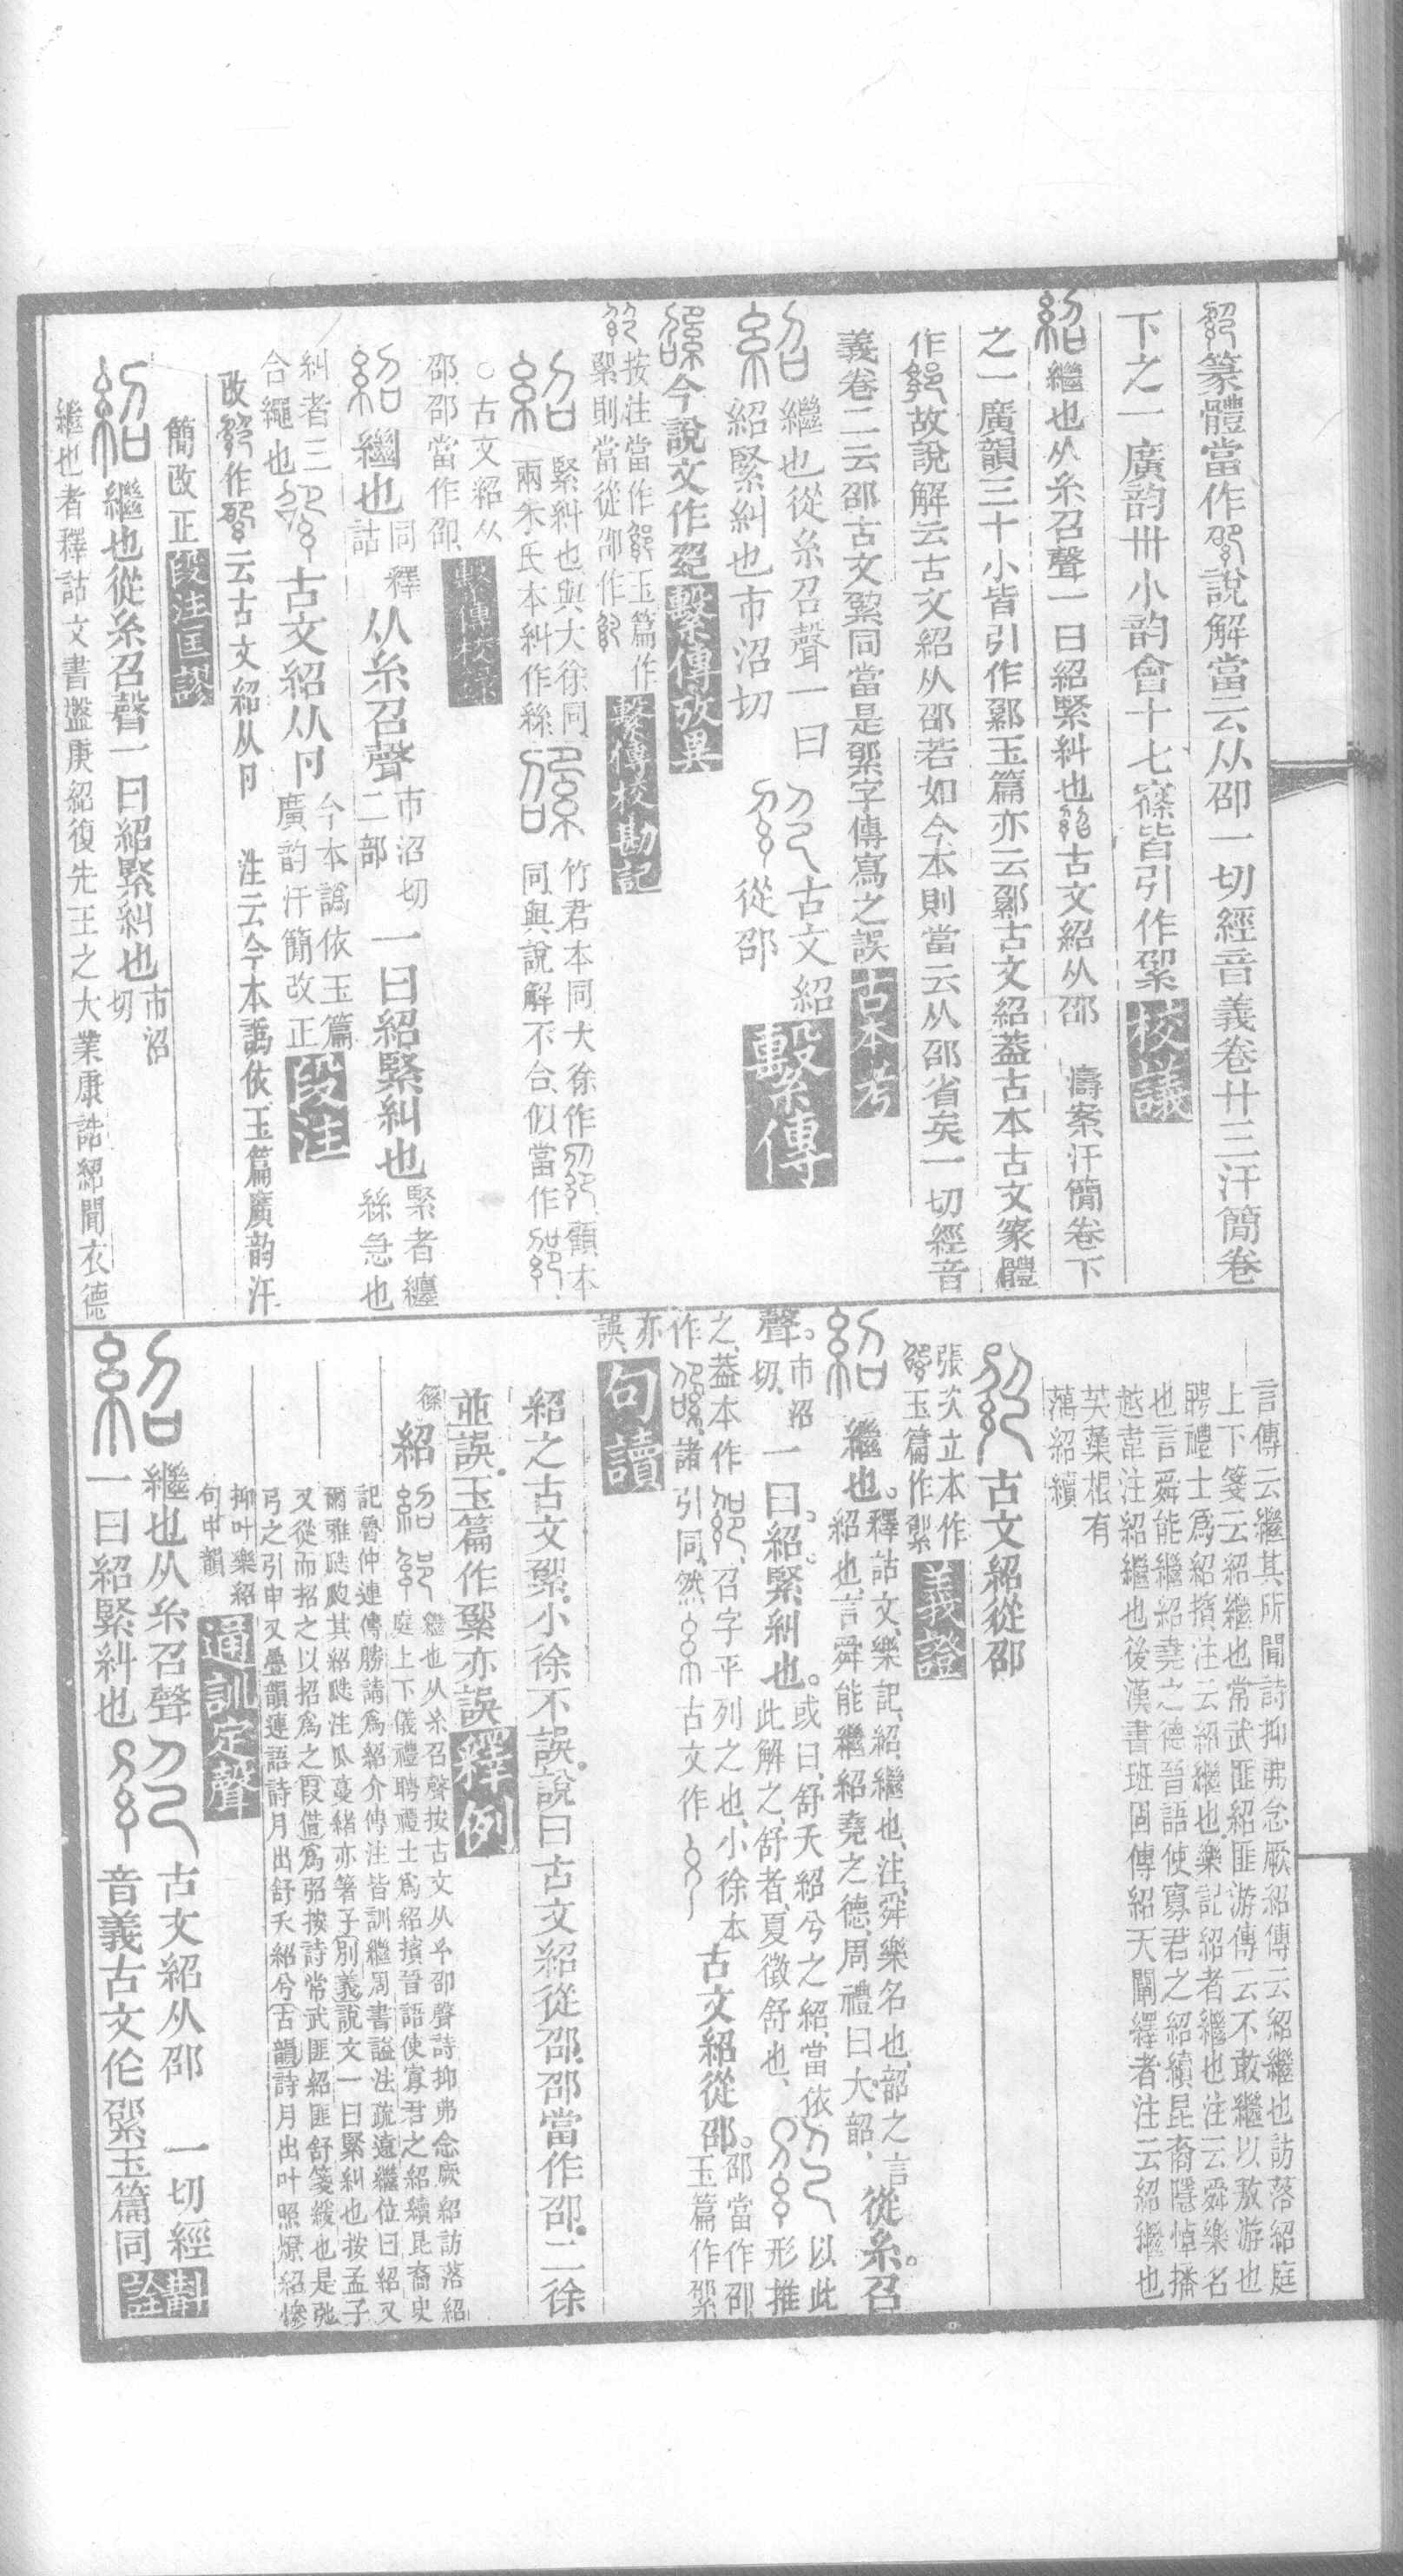 篆體當作說解當云从卲一切經音義卷廿三汗簡卷
下之一廣韵卅小韵會十七篠皆引作綤校議
紹繼也从糸召聲一曰紹緊糾也古文紹从邵　濤案汗簡卷下
之一廣韻三十小皆引作玉篇亦云古文紹葢古本古文篆體
作故說解云古文紹从邵若如今本則當云从邵省矣一切經音
義卷二云邵古文同當是字傳寫之誤古本考
紹繼也從糸召聲一曰紹緊糾也市沼切古文紹從邵繫傳
今說文作繫傳攷異
按注當作玉篇作則當從邵作繫傳校勘記
紹緊糾也與大徐同兩朱氏本糾作絲竹君本同大徐作顧本同與說解不合似當作
○古文紹从邵邵當作卲繫傳校錄
紹繼也釋詁同从糸召聲市沼切二部一曰紹緊糾也緊者纏絲急也
糾者三合繩也古文紹从卪今本譌依玉篇廣韵汗簡改正段注
改作云古文紹从卪　注云今本譌依玉篇廣韵汗
簡改正段注匡謬
紹繼也從糸召聲一曰紹緊糾也市沼切
繼也者釋詁文書盤庚紹復先王之大業康誥紹聞衣德
言傳云繼其所聞詩抑弗念厥紹傳云紹繼也訪落紹庭
上下箋云紹繼也常武匪紹匪游傳云不敢繼以敖游也
聘禮士爲紹擯注云紹繼也樂記紹者繼也注云舜樂名
也言舜能繼紹堯之德晉語使寡君之紹續昆裔隱悼播
越韋注紹繼也後漢書班固傳紹天闡繹者注云紹繼也
芙蕖根有
蕅紹續
古文紹從邵
張次立本作玉篇作義證
紹繼也。釋詁文、樂記、紹、繼也、注、舜樂名也、韶之言紹也、言舜能繼紹堯之德、周禮曰大韶、從糸。召
聲。市沼切、一曰。紹。緊糾也。或曰、舒夭紹兮之紹、當依此解之、舒者、夏徵舒也、以此形推
之、葢本作召字平列之也、小徐本作諸引同、然古文作古文紹從邵。邵當作卲玉篇作
亦誤句讀
紹之古文小徐不誤說曰古文紹從邵邵當作卲二徐
並誤玉篇作亦誤釋例
篠紹繼也从糸召聲按古文从糸卲聲詩抑弗念厥紹訪落紹庭上下儀禮聘禮士爲紹擯晉語使寡君之紹續昆裔史
記魯仲連傳勝請爲紹介傳注皆訓繼周書謚法疏遠繼位曰紹又爾雅瓞瓝其紹瓞注瓜蔓緒亦箸子別義說文一曰緊糾也按孟子
又從而招之以招爲之叚借爲弨按詩常武匪紹匪舒箋緩也是弛弓之引申又疊韻連語詩月出舒夭紹兮古韻詩月出叶照燎紹慘
抑叶樂紹句中韻通訓定聲
紹繼也从糸召聲古文紹从邵　一切經
一曰紹緊糾也音義古文作玉篇同斠詮